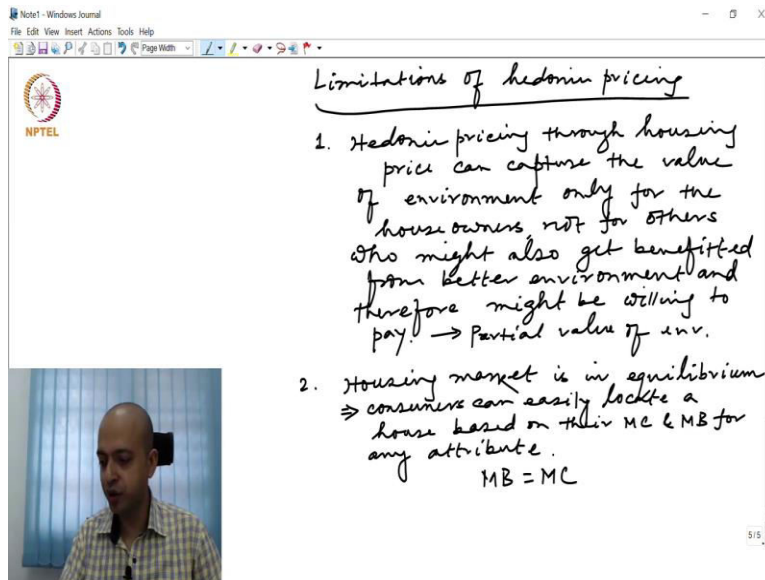 Note1 - Windows Journal
File Edit View Insert Actions Tools Help
Page Width
NPTEL
Limitations of hedonic pricing
1. Hedonic pricing through housing
price can capture the value
of environment only for the
house owners, not for others
who might also get benefitted
from better environment and
therefore might be willing to
pay. → Partial value of env.
2. Housing market is in equilibrium
⇒ consumers can easily locate a
house based on their MC & MB for
any attribute.
MB = MC
5/5